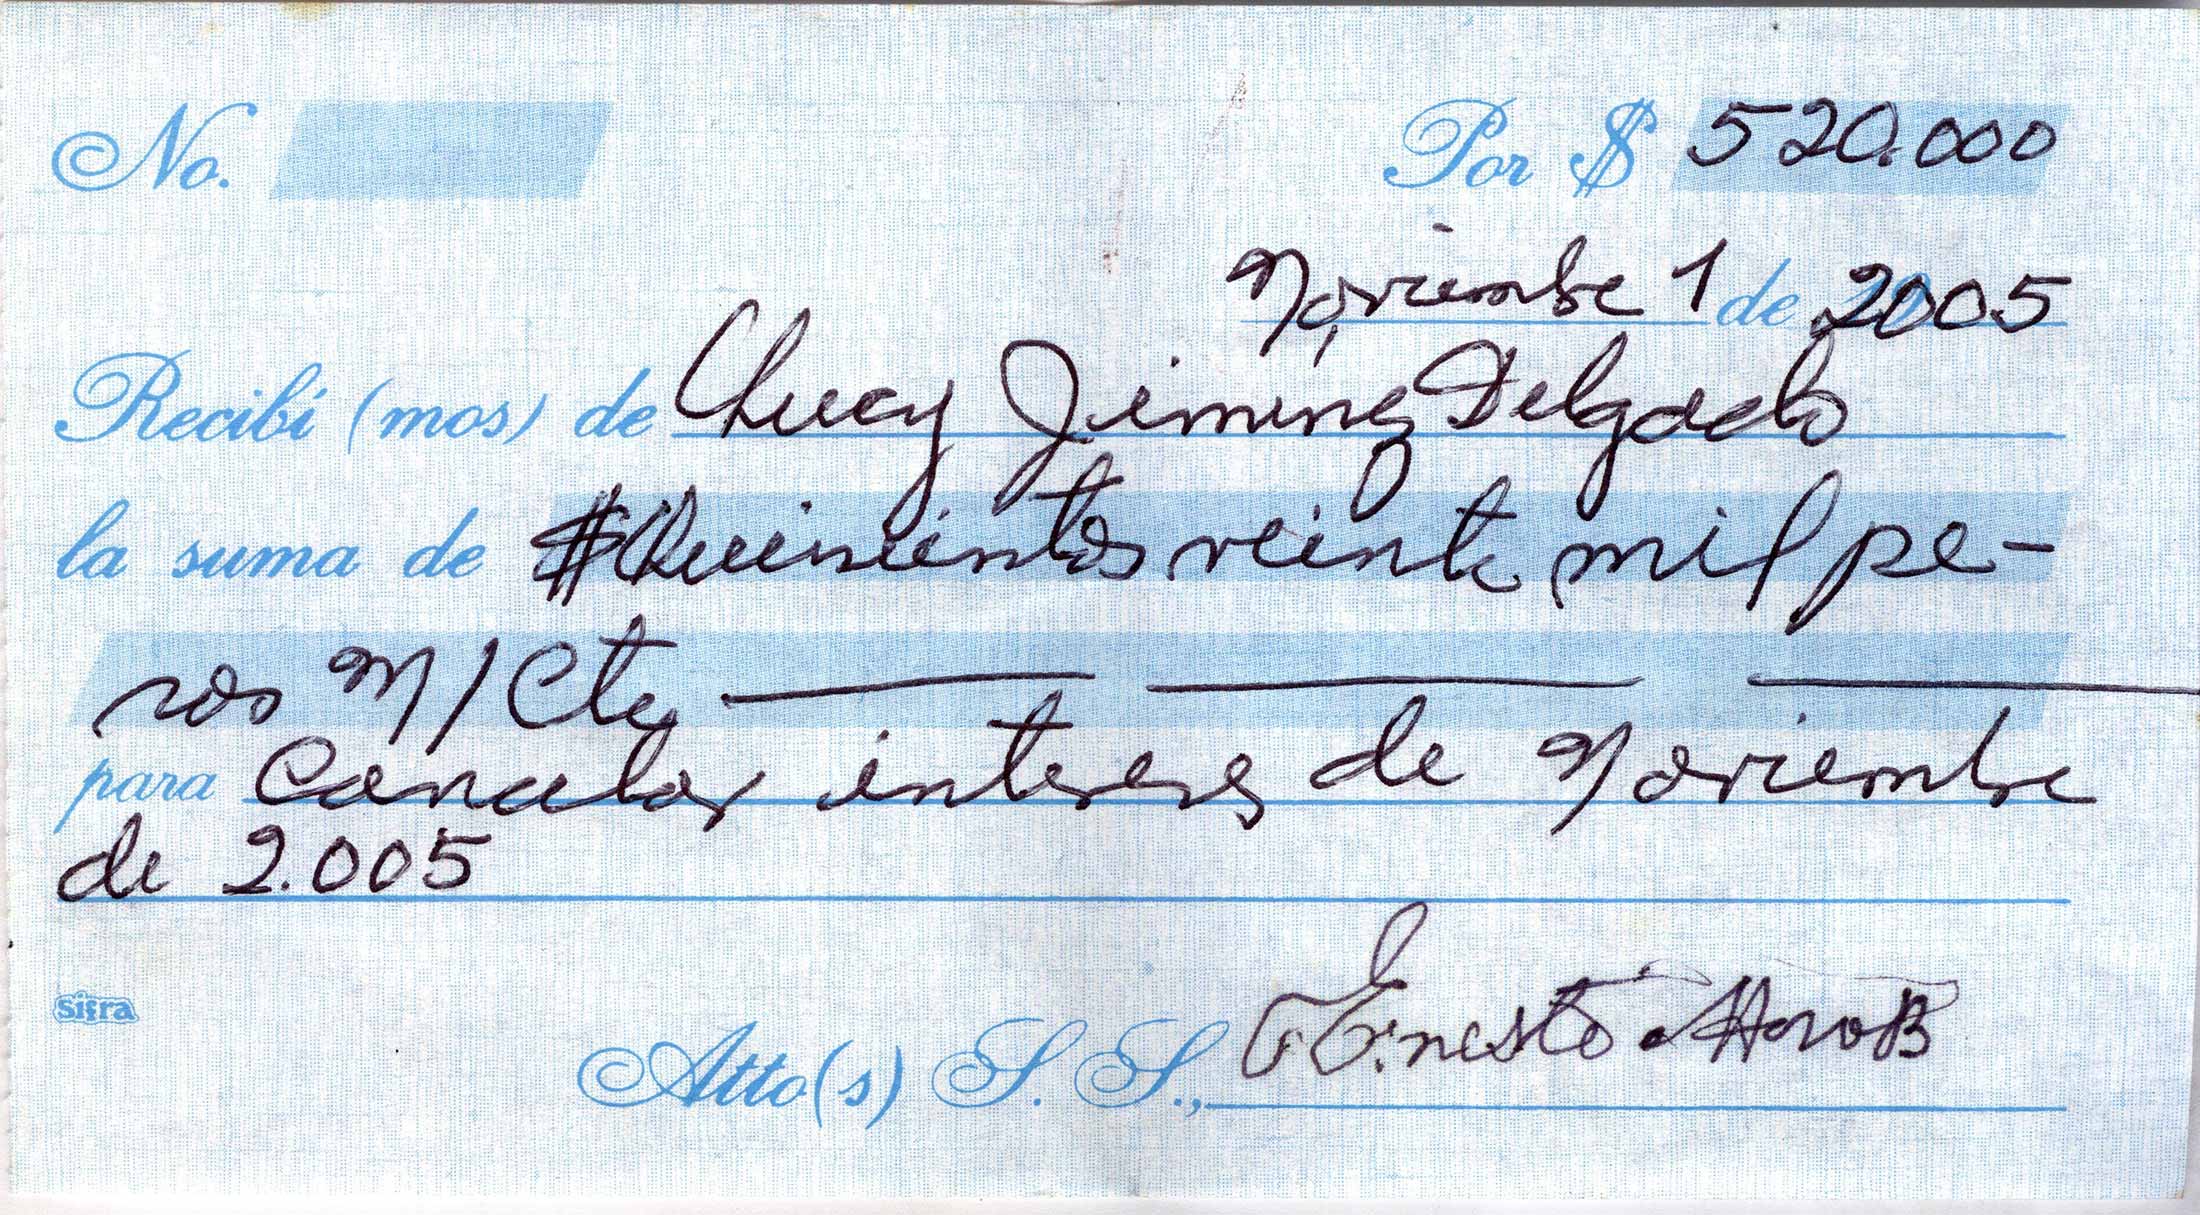 No. Por $ 520.000
Noviembre 1 de 2005
Recibí (mos) de Lucy Jiménez Delgado
la suma de $ Quinientos veinte mil pe-
sos M/Cte
para Cancelar intereses de Noviembre
de 2.005
Sifra
Atto(s) S. S., Ernesto